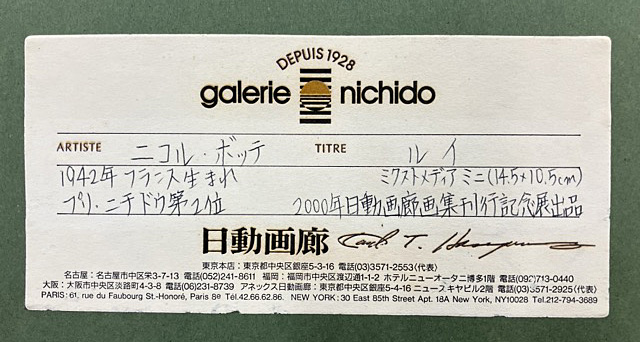 DEPUIS 1928
galerie nichido
ARTISTE ニコル・ボッテ TITRE ルイ
1942年フランス生まれ ミクストメディア ミニ(14.5×10.5cm)
プリ・ニチドウ第2位 2000年日動画廊画集刊行記念展出品
日動画廊
東京本店：東京都中央区銀座5-3-16 電話(03)3571-2553〈代表〉
名古屋：名古屋市中区栄3-7-13 電話(052)241-8611 福岡：福岡市中央区渡辺通1-1-2 ホテルニューオータニ博多1階 電話(092)713-0440
大阪：大阪市中央区淡路町4-3-8 電話(06)231-8739 アネックス日動画廊：東京都中央区銀座5-4-16 ニュースキヤビル2階 電話(03)3571-2925〈代表〉
PARIS: 61, rue du Faubourg St.-Honoré, Paris 8e Tél.42.66.62.86. NEW YORK: 30 East 85th Street Apt. 18A New York, NY10028 Tel.212-794-3689